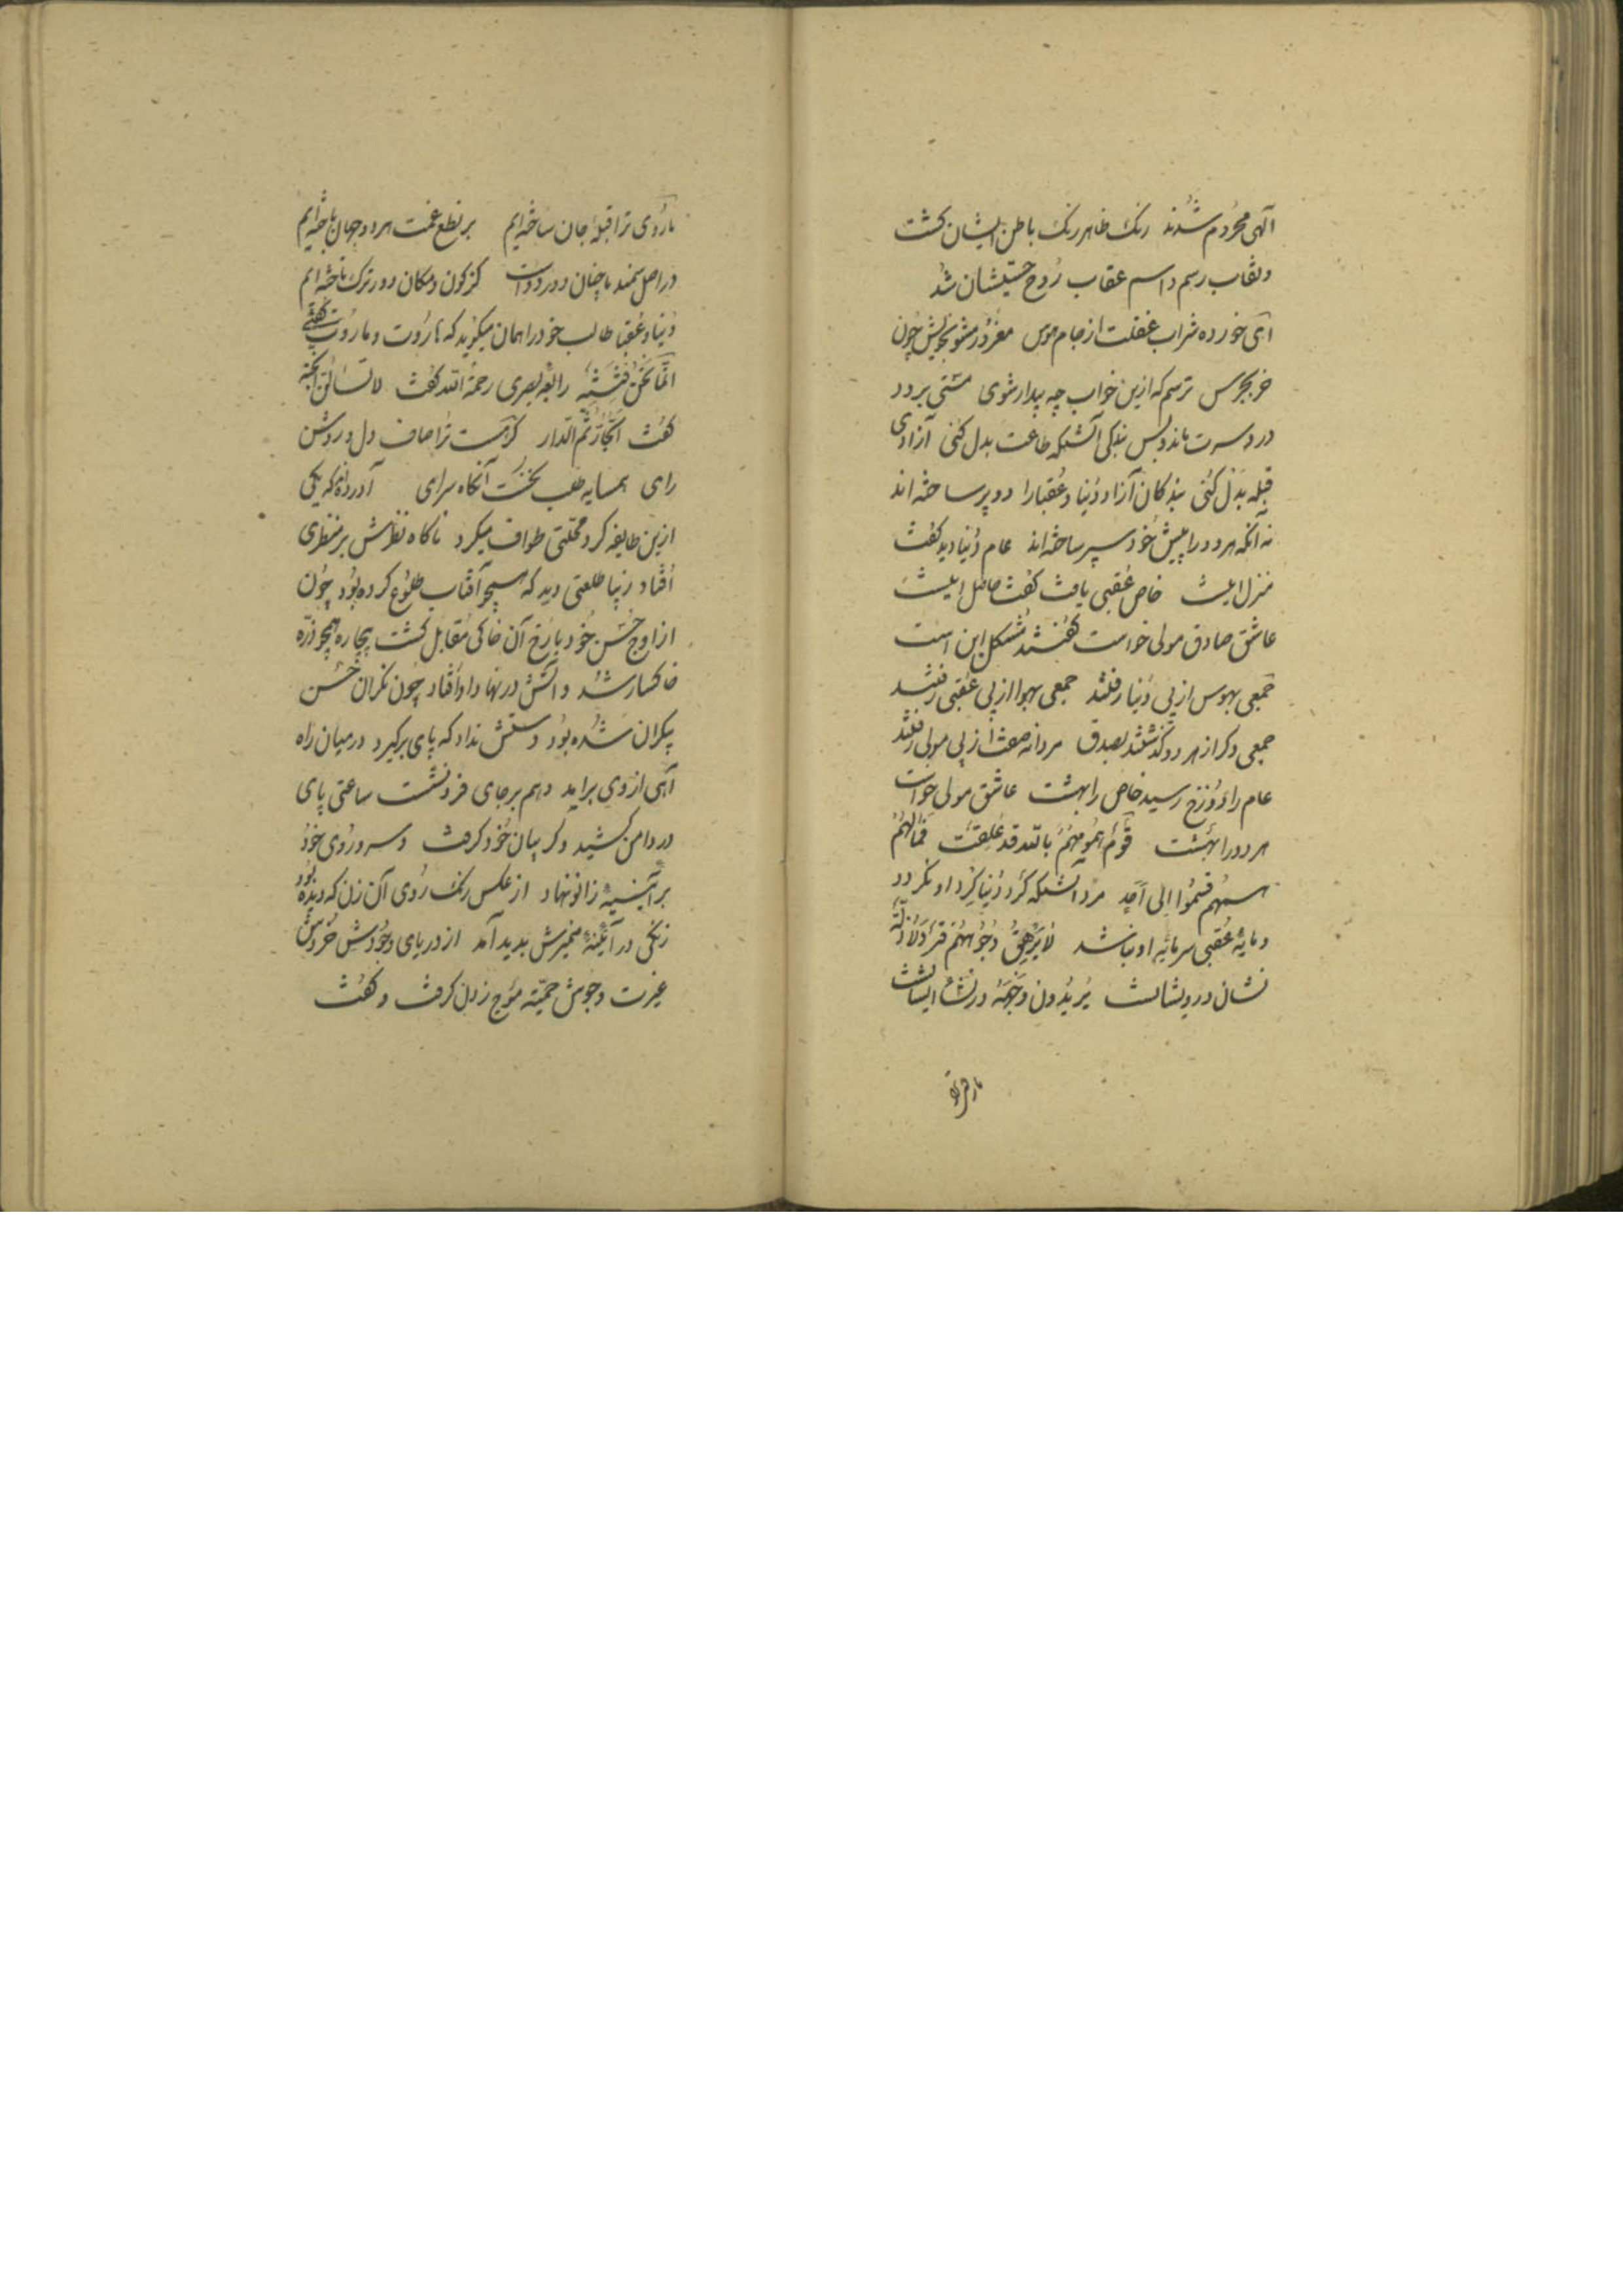 الهی محروم شدند رنک ظاهر رنک باطن ایشان کشت
و نقاب رسم و اسم عقاب روح حسیشان شد
ای خورده شراب غفلت از جام هوس مغرور مشو بخویش چون
خر بجرس ترسم که ازین خواب چه بیدار شوی مستی برود
درد سرت ماند و بس بندکی آتشکه طاعت بدل کنی آزادی
قبله بدل کنی بندکان آزاد دنیا و عقبا را دو پر ساخته‌اند
نه آنکه هر دو را پیش خود سپر ساخته‌اند عام دنیا دید کفت
منزل اینست خاص عقبی یافت کفت حاصل اینست
عاشق صادق مولی خواست کفتند مشکل این است
جمعی بهوس از پی دنیا رفتند جمعی بهوا از پی عقبی رفتند
جمعی دکر از هر دو کذشتند بصدق مردانه صفت از پی مولی رفتند
عام را دوزخ رسید خاص را بهشت عاشق مولی خواست
هر دو را بهشت قوم همومهم بالله قد علقت فمالهم
همم تسموا الی احد مرد آنستکه کرد دنیا کرد او نکردد
و مایه عقبی سرمایه او نباشد لا یرهق وجوههم قتر ولا ذلة
نشان درویشانست یریدون وجهه در شأن ایشانست
تا روی ترا
تا روی ترا قبله جان ساخته‌ایم بر نطع غمت هر دو جهان باخته‌ایم
در اصل سمند ما چنان دور دواست کز کون و مکان دورترک تاخته‌ایم
دنیا و عقبا طالب خود را همان میکوید که هاروت و ماروت کفتی
انما نحن فتنة رابعه بصری رحمة الله کفت لا تسألن الجنة
کفت الجار ثم الدار کرهست ترا صاف دل و روشن
رای همسایه طلب نخست آنکاه سرای آورده‌اند که یکی
ازین طایفه کرد محلتی طواف میکرد ناکاه نظرش بر منظری
افتاد زیبا طلعتی دید که همچو آفتاب طلوع کرده بود چون
از اوج حسن خود با رخ آن خاکی مقابل کشت بیچاره همچو ذره
خاکسار شد و آتش در نهاد او افتاد چون نکران حسن
بیکران شده بود دستش نداد که پای برکیرد در میان راه
آهی از وی برآید و هم بر جای فرو نشست ساعتی پای
در دامن کشید و کریبان خود کرفت و سر و روی خود
بر آیینه زانو نهاد از عکس رنک روی آن زن که دیده بود
زنکی در آیینه ضمیرش بدید آمد از دریای وجودش خروش
غیرت و جوش حمیت موج زدن کرفت و کفت